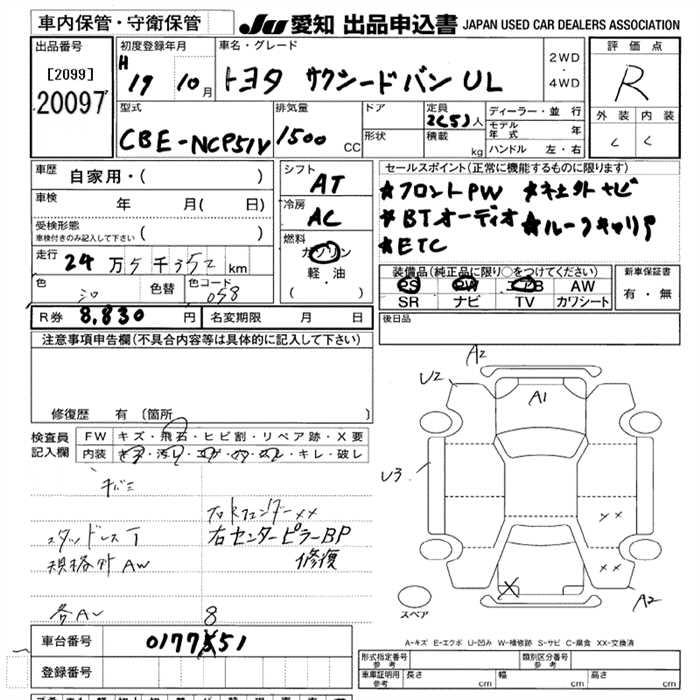 車内保管・守衛保管
JU 愛知 出品申込書 JAPAN USED CAR DEALERS ASSOCIATION
出品番号
[2099]
20097
初度登録年月
H 19 10月
車名・グレード
トヨタ サクシードバン UL
2WD
・
4WD
評価点
R
外装 内装
C C
型式
CBE-NCP51V
排気量
1500 CC
ドア
形状
定員
2(5)人
積載
kg
ディーラー・並行
モデル年式 年
ハンドル 左・右
車歴
自家用・( )
車検
年 月( 日)
受検形態
車検付きのみ記入して下さい ( )
走行
24万5千352km
色
シロ
色替
色コード
058
シフト
AT
冷房
AC
燃料
ガソリン
軽・油
( )
セールスポイント(正常に機能するものに限ります)
★フロントPW ★社外ナビ
★BTオーディオ ★ルーフキャリア
★ETC
装備品(純正品に限り○をつけてください)
PS PW エアB AW
SR ナビ TV カワシート
新車保証書
有・無
R券 8,830円
名変期限 月 日
後日品
注意事項申告欄(不具合内容等は具体的に記入して下さい)
修復歴 有 〔箇所 〕
検査員
記入欄
FW キズ・飛石・ヒビ割・リペア跡・X要
内装 キズ・汚レ・コゲ・穴・スレ・キレ・破レ
キバミ
右Rフェンダーxx
スタッドレスT
右センターピラーBP
規格外AW
修復
各A～
8
車台番号 0177551
登録番号
A2
U2
A1
U3
xx
xx
X
A2
スペア
A-キズ E-エクボ U-凹み W-補修跡 S-サビ C-腐食 XX-交換済
形式指定番号
参考
類別区分番号
参考
車庫証明用
参考
長さ cm
幅 cm
高さ cm